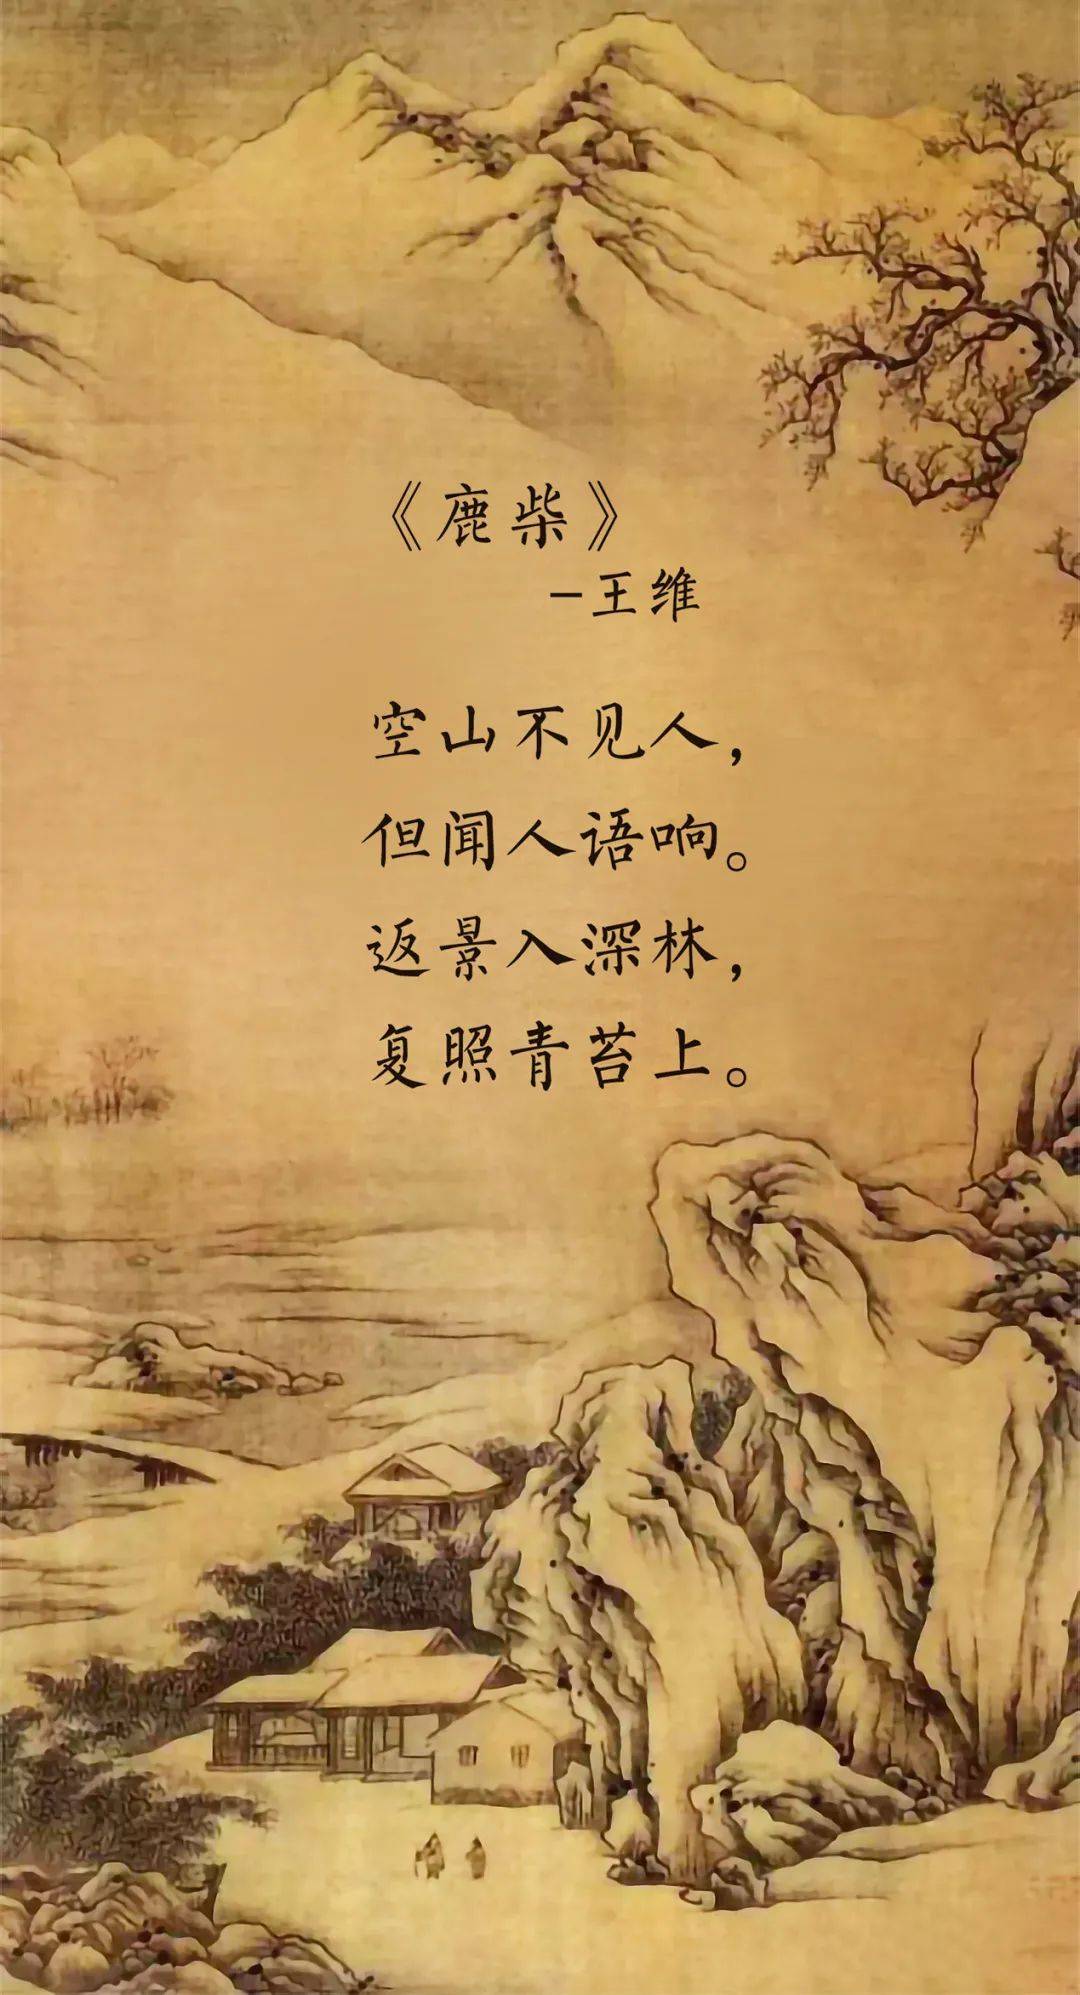 《鹿柴》
-王维
空山不见人，
但闻人语响。
返景入深林，
复照青苔上。